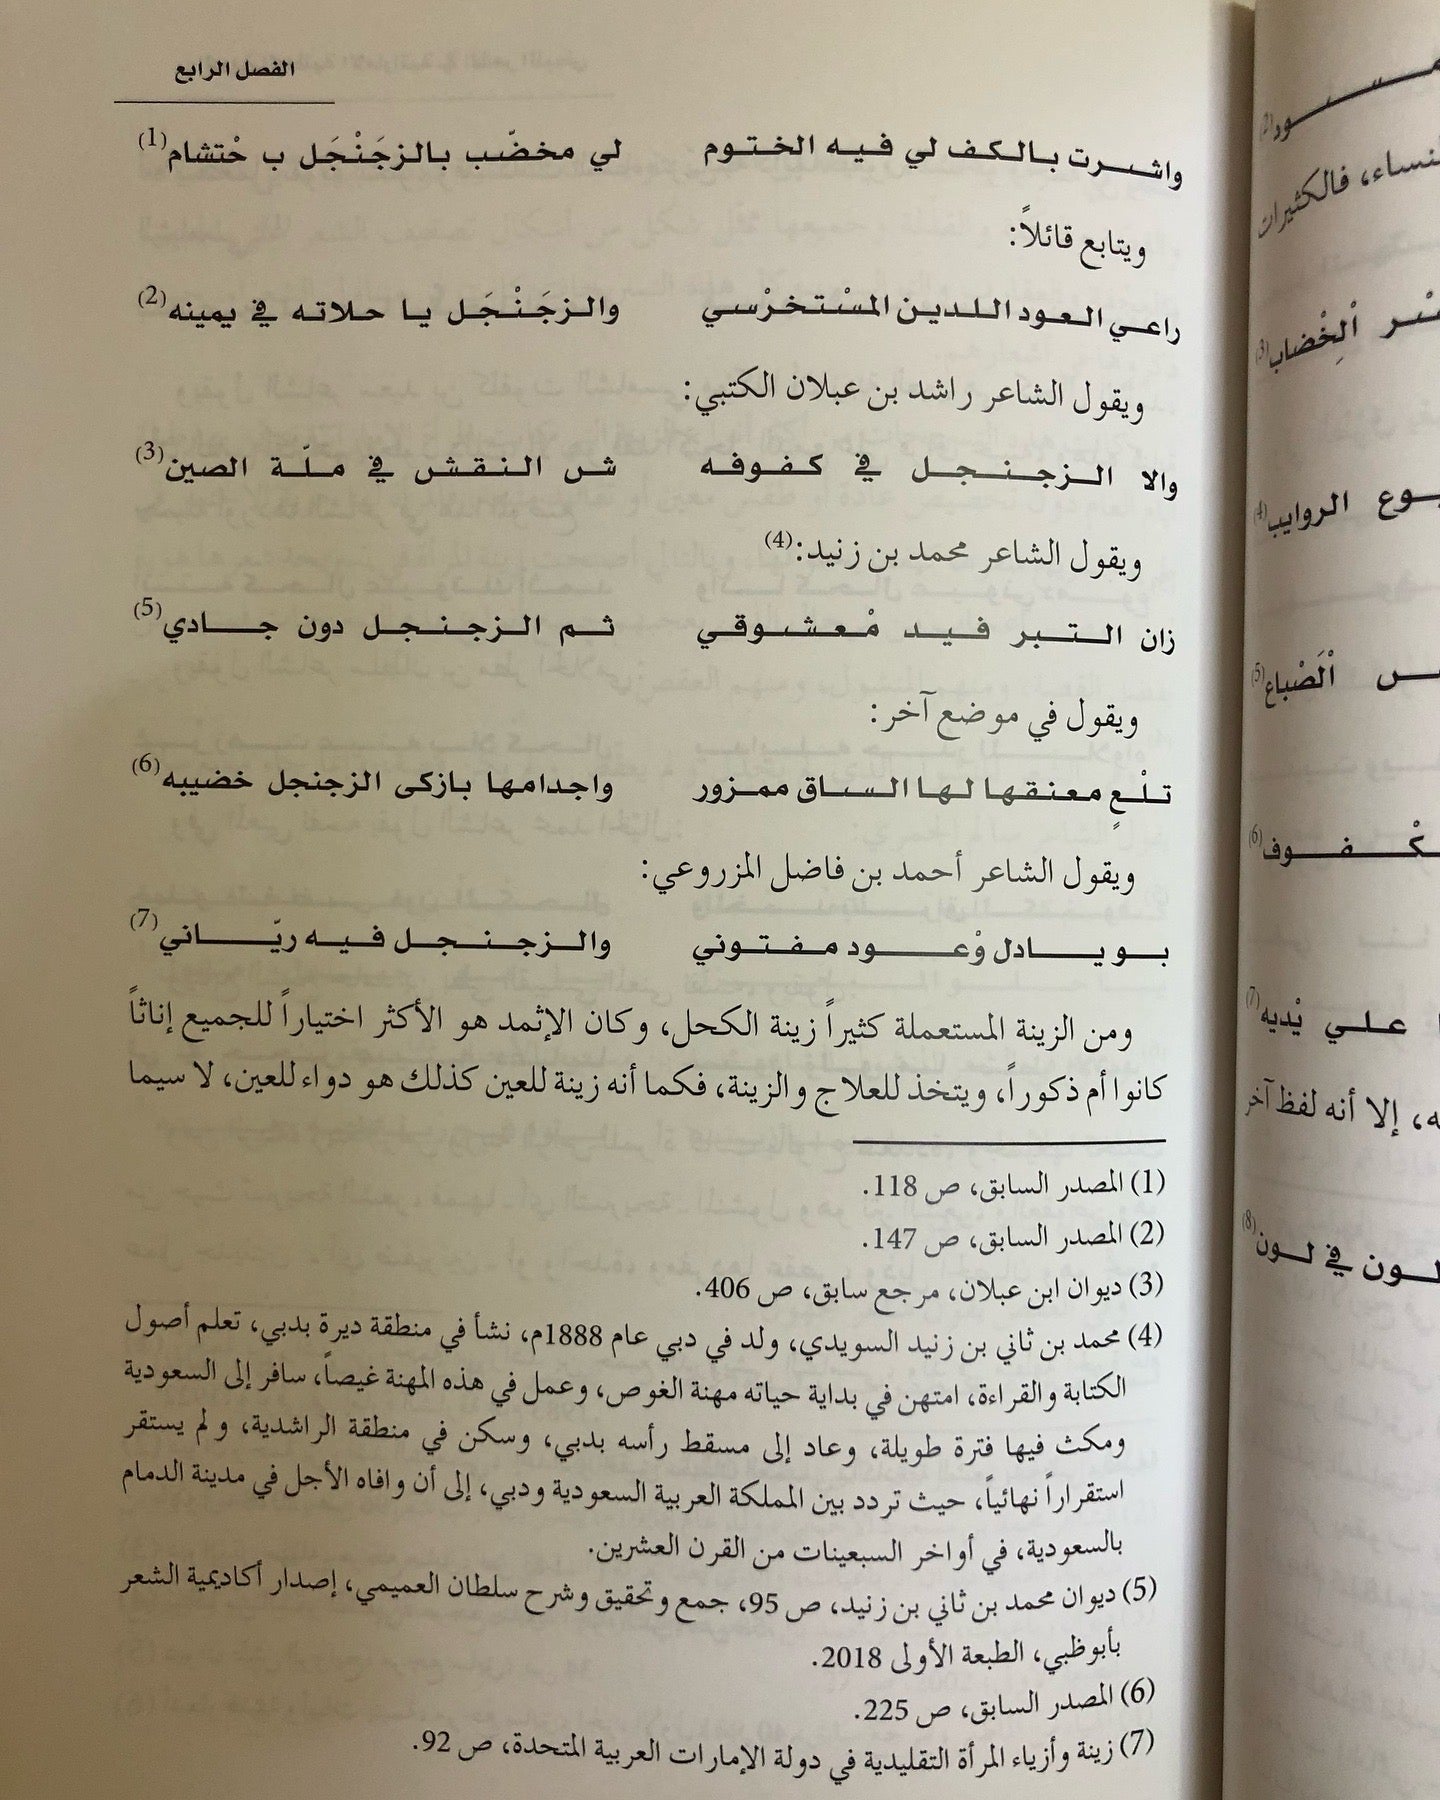 الفصل الرابع
واشرت بالكف لي فيه الختوم لي مخضّب بالزجَنْجَل ب حْتشام(1)
ويتابع قائلاً:
راعي العود اللدين المسْتخرْسي والزجَنْجَل يا حلاته في يمينه(2)
ويقول الشاعر راشد بن عبلان الكتبي:
والا الزجنجل في كفوفه شن النقش في ملّة الصين(3)
ويقول الشاعر محمد بن زنيد:(4)
زان التبر فيد مْعشوقي ثم الزجنجل دون جادي(5)
ويقول في موضع آخر:
تلْعٍ معنقها لها الساق ممزور واجدامها بازكى الزجنجل خضيبه(6)
ويقول الشاعر أحمد بن فاضل المزروعي:
بو يادل وْعود مفتوني والزجنجل فيه ريّاني(7)
ومن الزينة المستعملة كثيراً زينة الكحل، وكان الإثمد هو الأكثر اختياراً للجميع إناثاً
كانوا أم ذكوراً، ويتخذ للعلاج والزينة، فكما أنه زينة للعين كذلك هو دواء للعين، لا سيما
(1) المصدر السابق، ص 118.
(2) المصدر السابق، ص 147.
(3) ديوان ابن عبلان، مرجع سابق، ص 406.
(4) محمد بن ثاني بن زنيد السويدي، ولد في دبي عام 1888م، نشأ في منطقة ديرة بدبي، تعلم أصول
الكتابة والقراءة، امتهن في بداية حياته مهنة الغوص، وعمل في هذه المهنة غيصاً، سافر إلى السعودية
ومكث فيها فترة طويلة، وعاد إلى مسقط رأسه بدبي، وسكن في منطقة الراشدية، ولم يستقر
استقراراً نهائياً، حيث تردد بين المملكة العربية السعودية ودبي، إلى أن وافاه الأجل في مدينة الدمام
بالسعودية، في أواخر السبعينات من القرن العشرين.
(5) ديوان محمد بن ثاني بن زنيد، ص 95، جمع وتحقيق وشرح سلطان العميمي، إصدار أكاديمية الشعر
بأبوظبي، الطبعة الأولى 2018.
(6) المصدر السابق، ص 225.
(7) زينة وأزياء المرأة التقليدية في دولة الإمارات العربية المتحدة، ص 92.
فالكثيرات
الْخْضاب(3)
الروايب(4)
الْصْباع(5)
علي يْديه(7)
إلا أنه لفظ آخر
لون في لون(8)